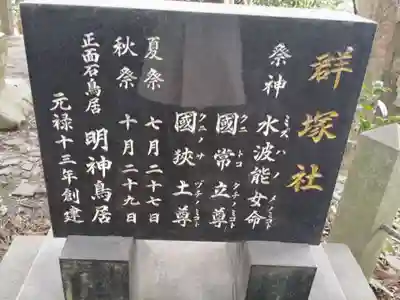 群塚社
祭神 水波能女命
ミズハノメノミコト
國常立尊
クニトコタチノミコト
國狹土尊
クニノサヅチノミコト
夏祭 七月二十七日
秋祭 十月二十九日
正面石鳥居 明神鳥居
元禄十三年創建